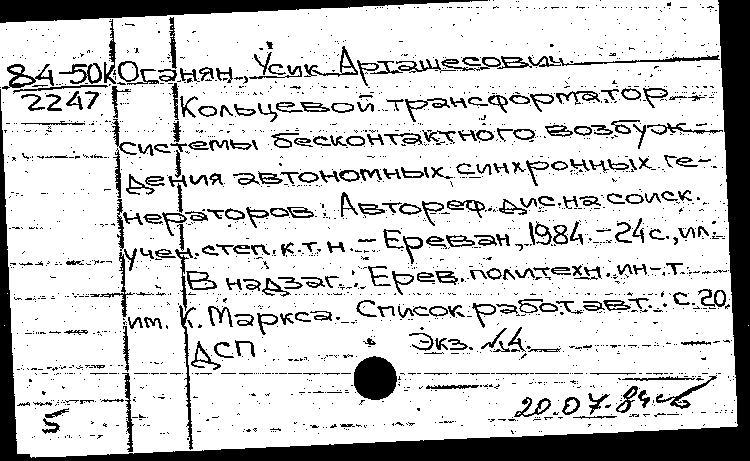 84-50к Оганян, Усик Арташесович
2247 Кольцевой трансформатор
системы бесконтактного возбуж-
дения автономных синхронных ге-
нераторов: Автореф. дис. на соиск.
учен. степ. к. т. н. - Ереван, 1984. - 24 с., ил.
В надзаг.: Ерев. политехн. ин-т
им. К. Маркса. Список работ авт.: с. 20.
ДСП Экз. №4.
5 20.07.84